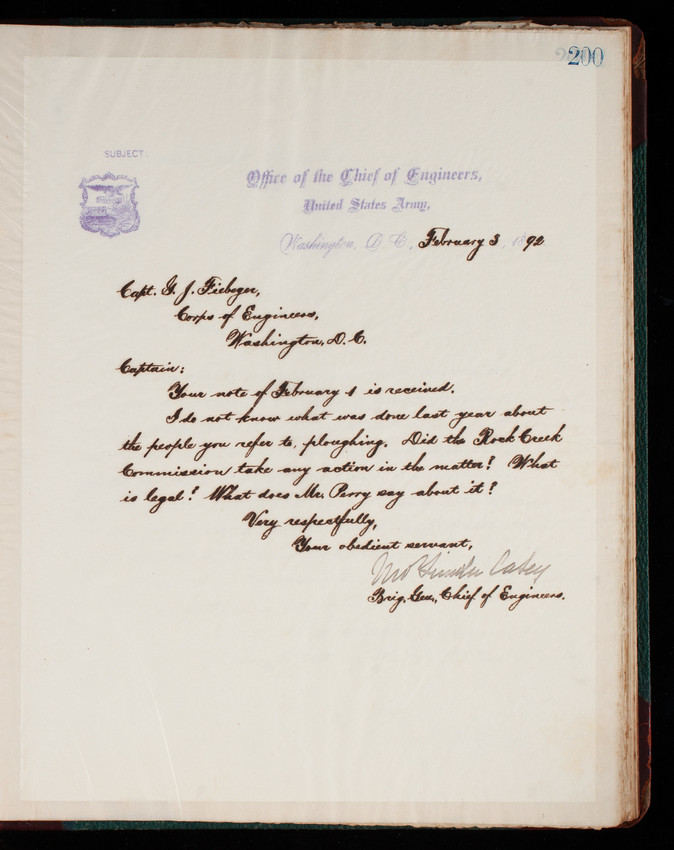 200
SUBJECT:
Office of the Chief of Engineers,
United States Army,
Washington, D. C., February 3, 1892
Capt. G. J. Fiebeger,
Corps of Engineers,
Washington, D. C.
Captain:
Your note of February 1 is received.
I do not know what was done last year about
the people you refer to, ploughing. Did the Rock Creek
Commission take any action in the matter? What
is legal? What does Mr. Perry say about it?
Very respectfully,
Your obedient servant,
Casey
Brig. Gen., Chief of Engineers.